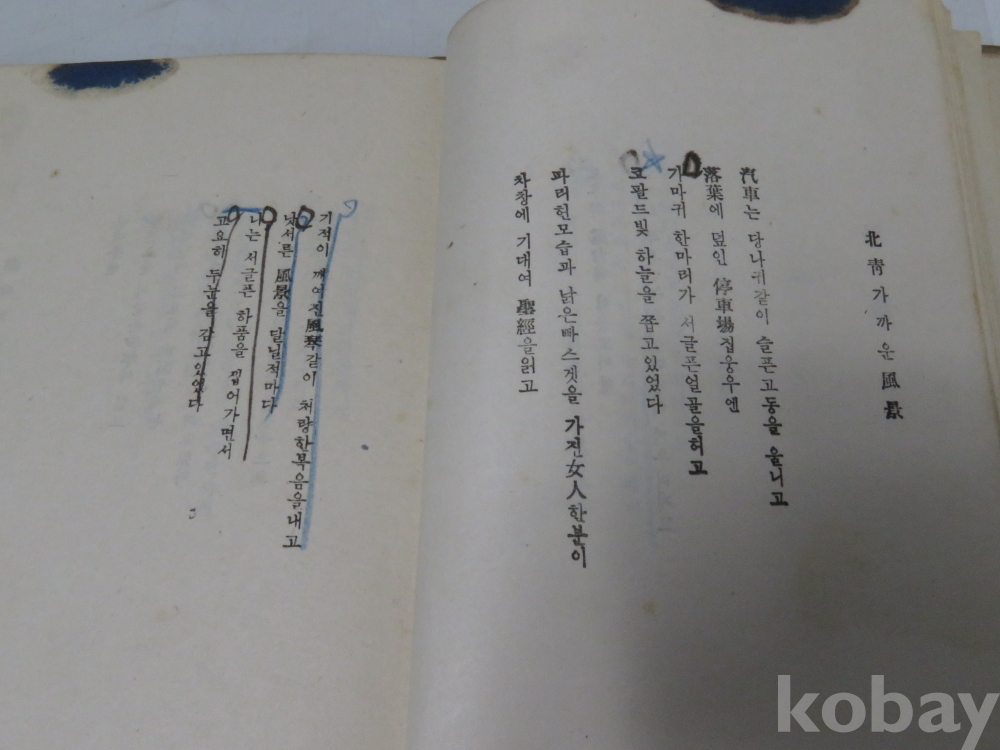 北靑가까운風景
汽車는 당나귀같이 슬픈고동을 울니고
落葉에 덮인 停車場집웅우엔
가마귀 한마리가 서글픈얼골을허고
코팔트빛 하늘을 쫍고있었다
파리헌모습과 낡은빠스겟을 가진女人한분이
차창에 기대여 聖經을읽고
기적이 깨여진風琴같이 처량한복음을내고
낫서른 風景을 달닐적마다
나는 서글픈 하품을 씹어가면서
고요히 두눈을 감고있었다
kobay